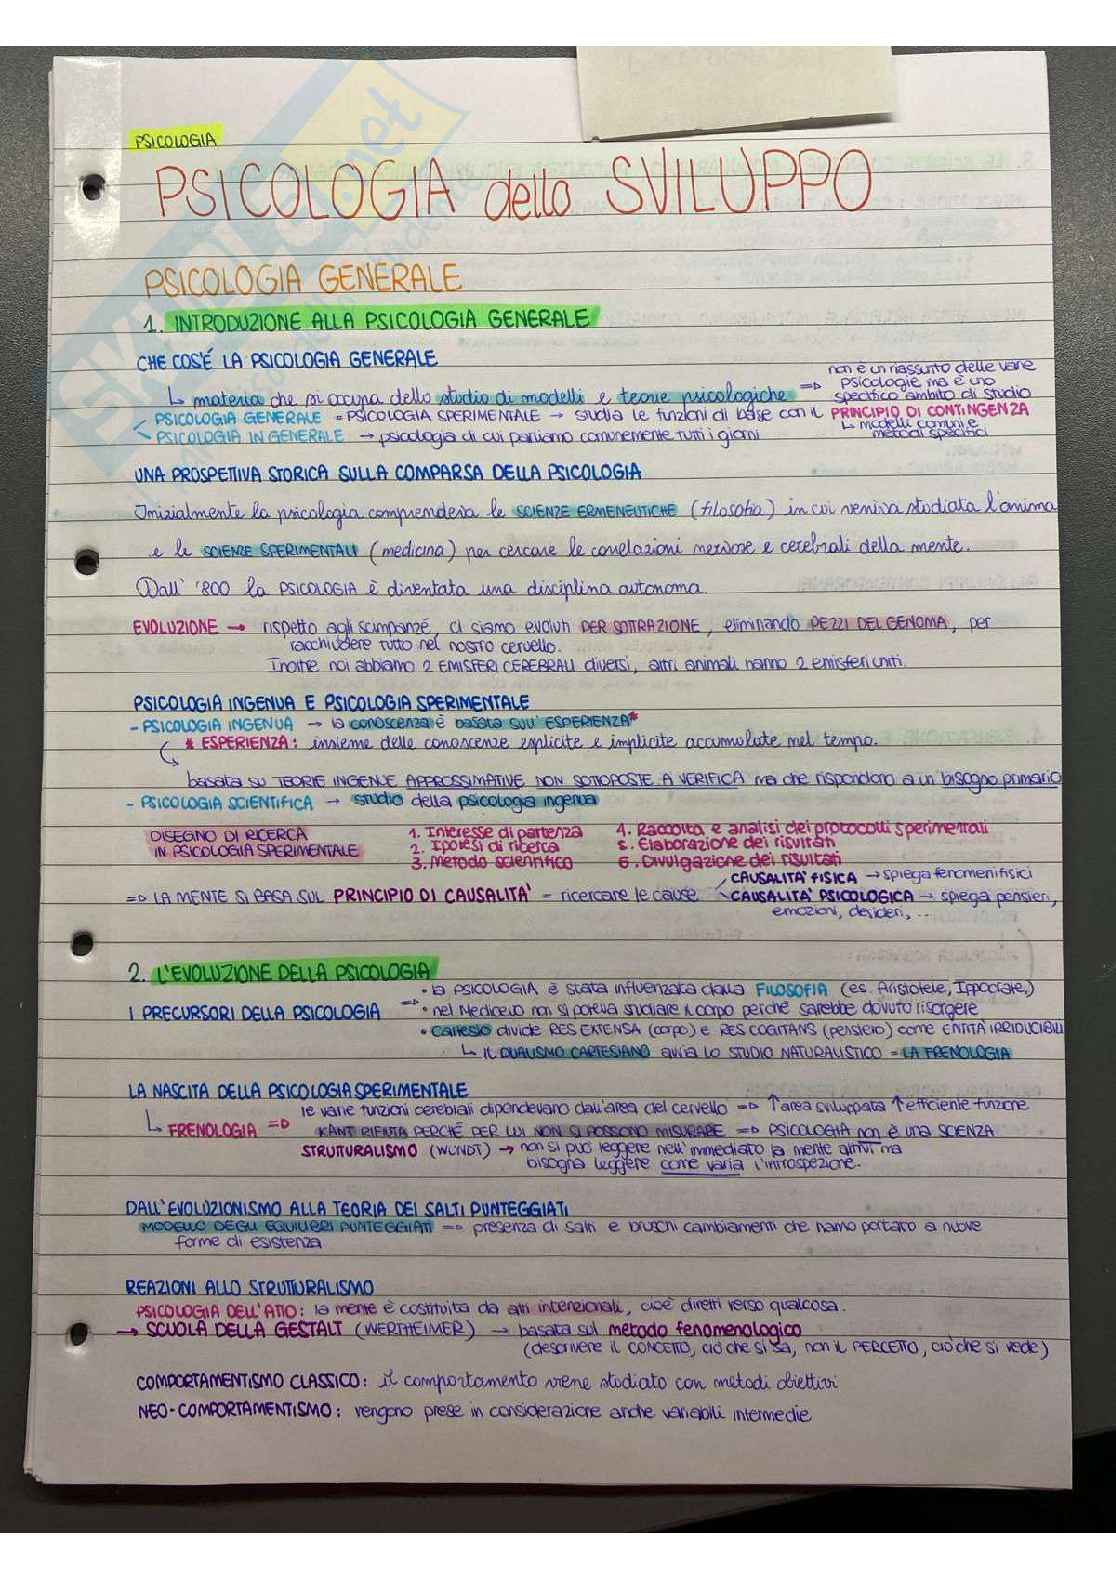 PSICOLOGIA
PSICOLOGIA dello SVILUPPO
PSICOLOGIA GENERALE
1. INTRODUZIONE ALLA PSICOLOGIA GENERALE
CHE COS'É LA PSICOLOGIA GENERALE
↳ materia che si occupa dello studio di modelli e teorie psicologiche ⇒ non è un riassunto delle varie
psicologie ma è uno
specifico ambito di studio
PSICOLOGIA GENERALE = PSICOLOGIA SPERIMENTALE → studia le funzioni di base con il PRINCIPIO DI CONTINGENZA
↳ modelli comuni e
metodi specifici
PSICOLOGIA IN GENERALE → psicologia di cui parliamo comunemente tutti i giorni
UNA PROSPETTIVA STORICA SULLA COMPARSA DELLA PSICOLOGIA
Inizialmente la psicologia comprendeva le SCIENZE ERMENEUTICHE (filosofia) in cui veniva studiata l'anima
e le SCIENZE SPERIMENTALI (medicina) per cercare le correlazioni nervose e cerebrali della mente.
Dall' '800 la PSICOLOGIA è diventata una disciplina autonoma.
EVOLUZIONE → rispetto agli scimpanzé, ci siamo evoluti PER SOTTRAZIONE, eliminando PEZZI DEL GENOMA, per
racchiudere tutto nel nostro cervello.
Inoltre noi abbiamo 2 EMISFERI CEREBRALI diversi, altri animali hanno 2 emisferi uniti.
PSICOLOGIA INGENUA E PSICOLOGIA SPERIMENTALE
- PSICOLOGIA INGENUA → la conoscenza è basata sull'ESPERIENZA*
* ESPERIENZA: insieme delle conoscenze esplicite e implicite accumulate nel tempo.
basata su TEORIE INGENUE APPROSSIMATIVE NON SOTTOPOSTE A VERIFICA ma che rispondono a un bisogno primario
- PSICOLOGIA SCIENTIFICA → studio della psicologia ingenua
DISEGNO DI RICERCA
IN PSICOLOGIA SPERIMENTALE
1. Interesse di partenza
2. Ipotesi di ricerca
3. Metodo scientifico
4. Raccolta e analisi dei protocolli sperimentali
5. Elaborazione dei risultati
6. Divulgazione dei risultati
⇒ LA MENTE SI BASA SUL PRINCIPIO DI CAUSALITA' - ricercare le cause
CAUSALITA' FISICA → spiega fenomeni fisici
CAUSALITA' PSICOLOGICA → spiega pensieri,
emozioni, desideri, ...
2. L'EVOLUZIONE DELLA PSICOLOGIA
I PRECURSORI DELLA PSICOLOGIA ⇒
• la PSICOLOGIA è stata influenzata dalla FILOSOFIA (es. Aristotele, Ippocrate,)
• nel Medioevo non si poteva studiare il corpo perché sarebbe dovuto risorgere
• Cartesio divide RES EXTENSA (corpo) e RES COGITANS (pensiero) come ENTITÀ IRRIDUCIBILI
↳ IL DUALISMO CARTESIANO avvia lo STUDIO NATURALISTICO = LA FRENOLOGIA
LA NASCITA DELLA PSICOLOGIA SPERIMENTALE
↳ FRENOLOGIA ⇒ le varie funzioni cerebrali dipendevano dall'area del cervello ⇒ ↑area sviluppata ↑efficiente funzione
KANT RIFIUTA PERCHÉ PER LUI NON SI POSSONO MISURARE ⇒ PSICOLOGIA non è una SCIENZA
STRUTTURALISMO (WUNDT) → non si può leggere nell'immediato la mente altrui ma
bisogna leggere come varia l'introspezione.
DALL'EVOLUZIONISMO ALLA TEORIA DEI SALTI PUNTEGGIATI
MODELLO DEGLI EQUILIBRI PUNTEGGIATI ⇒ presenza di salti e bruschi cambiamenti che hanno portato a nuove
forme di esistenza
REAZIONI ALLO STRUTTURALISMO
PSICOLOGIA DELL'ATTO: la mente è costituita da atti intenzionali, cioè diretti verso qualcosa.
→ SCUOLA DELLA GESTALT (WERTHEIMER) → basata sul metodo fenomenologico
(descrivere il CONCETTO, ciò che si sa, non il PERCETTO, ciò che si vede)
COMPORTAMENTISMO CLASSICO: il comportamento viene studiato con metodi obiettivi
NEO-COMPORTAMENTISMO: vengono prese in considerazione anche variabili intermedie